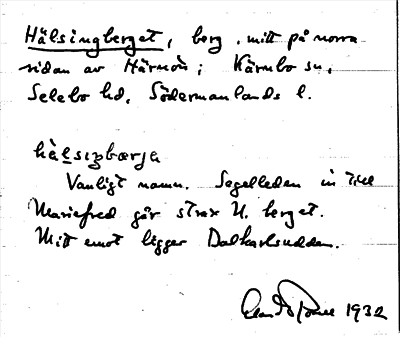 Hälsingberget, berg, mitt på norra
sidan av Härnön; Kärnbo sn,
Selebo hd, Södermanlands l.
hälsiŋbærja
Vanligt namn. Segelleden in till
Mariefred går strax N. berget.
Mitt emot ligger Dalkarlsudden.
1932